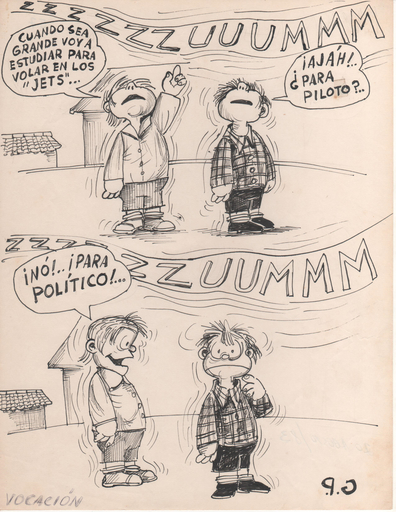 ZZZZZZUUUMMM
CUANDO SEA
GRANDE VOY A
ESTUDIAR PARA
VOLAR EN LOS
"JETS"...
¡AJÁH!..
¿PARA
PILOTO?..
ZZZZZZUUMMM
¡NÓ!..¡PARA
POLÍTICO!...
VOCACIÓN